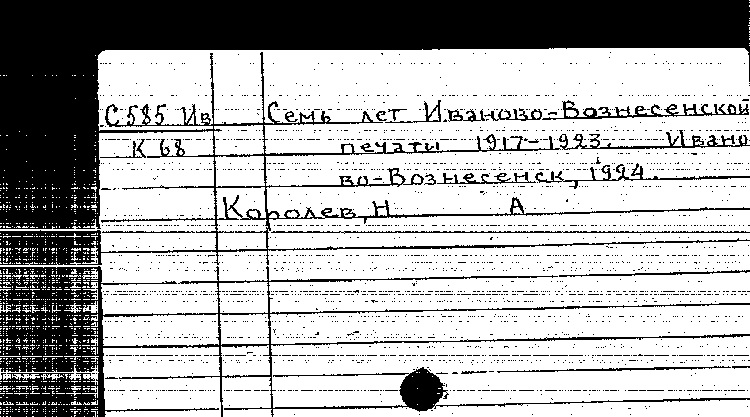 С585 Ив Семь лет Иваново-Вознесенской
К 68 печати 1917-1923. Ивано
во-Вознесенск, 1924.
Королев, Н А